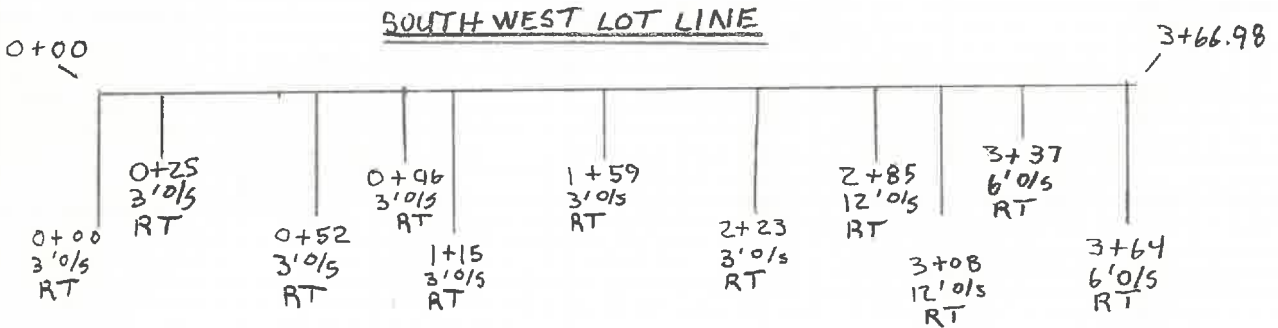 SOUTH WEST LOT LINE
0+00
3+66.98
0+00
3'0/S
RT
0+25
3'0/S
RT
0+52
3'0/S
RT
0+96
3'0/S
RT
1+15
3'0/S
RT
1+59
3'0/S
RT
2+23
3'0/S
RT
2+85
12'0/S
RT
3+08
12'0/S
RT
3+37
6'0/S
RT
3+64
6'0/S
RT